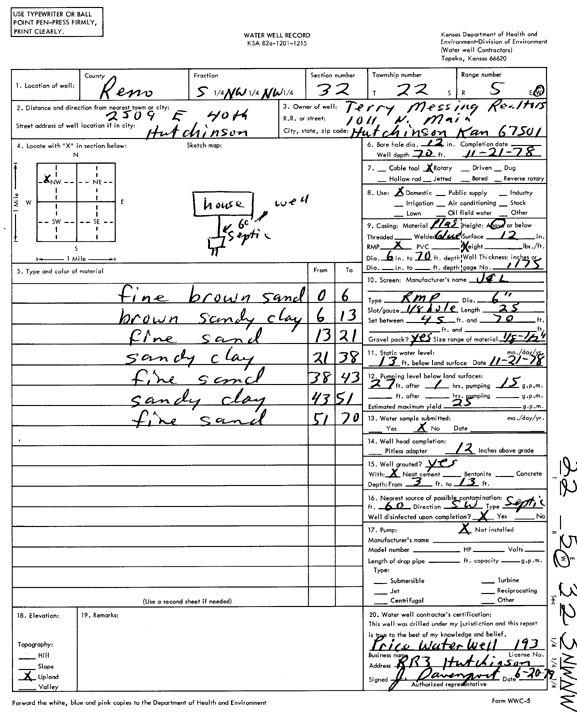 USE TYPEWRITER OR BALL
POINT PEN-PRESS FIRMLY,
PRINT CLEARLY.
WATER WELL RECORD
KSA 82a-1201-1215
Kansas Department of Health and
Environment-Division of Environment
(Water well Contractors)
Topeka, Kansas 66620
1. Location of well: County Reno Fraction S 1/4 NW 1/4 NW 1/4 Section number 32 Township number T 22 S Range number R 5 E W
2. Distance and direction from nearest town or city: 2509 E 40th
Street address of well location if in city: Hutchinson
3. Owner of well: Terry Messing Realtors
R.R. or street: 1011 N. Main
City, state, zip code: Hutchinson Kan 67501
4. Locate with "X" in section below:
N
X NW NE
W E
SW SE
S
1 Mile
1 Mile
Sketch map:
house well
60
Septic
6. Bore hole dia. 12 in. Completion date
Well depth 70 ft. 11-21-78
7. Cable tool X Rotary Driven Dug
Hollow rod Jetted Bored Reverse rotary
8. Use: X Domestic Public supply Industry
Irrigation Air conditioning Stock
Lawn Oil field water Other
9. Casing: Material Plas Height: Above or below
Threaded Welded Glued Surface 12 in.
RMP X PVC Weight lbs./ft.
Dia. 6 in. to 70 ft. depth Wall Thickness: inches or
Dia. in. to ft. depth gage No. .175
5. Type and color of material From To
fine brown sand 0 6
brown sandy clay 6 13
fine sand 13 21
sandy clay 21 38
fine sand 38 43
sandy clay 43 51
fine sand 51 70
(Use a second sheet if needed)
10. Screen: Manufacturer's name
Type RMP Dia. 6"
Slot/gauze 1/8 hole Length 25
Set between 45 ft. and 70 ft.
ft. and ft.
Gravel pack? Yes Size range of material 1/8-1/2"
11. Static water level: mo./day/yr.
13 ft. below land surface Date 11-21-78
12. Pumping level below land surfaces:
27 ft. after 1 hrs. pumping 15 g.p.m.
ft. after hrs. pumping g.p.m.
Estimated maximum yield 25 g.p.m.
13. Water sample submitted: mo./day/yr.
Yes X No Date
14. Well head completion:
Pitless adapter 12 Inches above grade
15. Well grouted? yes
With: X Neat cement Bentonite Concrete
Depth: From 3 ft. to 13 ft.
16. Nearest source of possible contamination:
ft. 60 Direction SW Type Septic
Well disinfected upon completion? X Yes No
17. Pump: X Not installed
Manufacturer's name
Model number HP Volts
Length of drop pipe ft. capacity g.p.m.
Type:
Submersible Turbine
Jet Reciprocating
Centrifugal Other
18. Elevation:
Topography:
Hill
Slope
X Upland
Valley
19. Remarks:
20. Water well contractor's certification:
This well was drilled under my jurisdiction and this report
is true to the best of my knowledge and belief.
Price Water Well 193
Business name License No.
Address RR3 Hutchinson
Signed J. Davenport Date 6-20-79
Authorized representative
Forward the white, blue and pink copies to the Department of Health and Environment
Form WWC-5
T 22 R 5 E W Sec 32 S 1/4 NW 1/4 NW 1/4